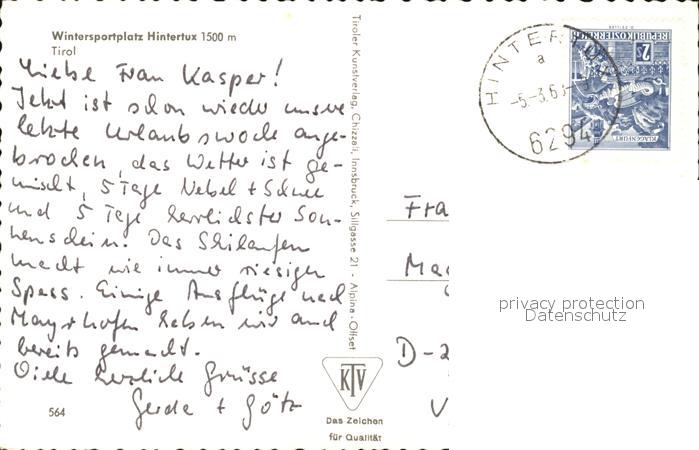 Wintersportplatz Hintertux 1500 m
Tirol
Liebe Frau Kasper!
Jetzt ist schon wieder unsere
letzte Urlaubswoche ange-
brochen, das Wetter ist ge-
mischt, 5 Tage Nebel + Schnee
und 5 Tage herrlichster Son-
nenschein. Das Skilaufen
macht wie immer riesigen
Spass. Einige Ausflüge nach
Mayrhofen haben wir auch
bereits gemacht.
Viele herzliche Grüsse
Gerda + Götz
564
Tiroler Kunstverlag, Chizzali, Innsbruck, Sillgasse 21 - Alpina-Offset
KTV
Das Zeichen
für Qualität
HINTERTUX
a
-5.-3.6
6294
2s
REPUBLIK ÖSTERREICH
KLAGENFURT
Fra
Ma
D-2
V
privacy protection
Datenschutz